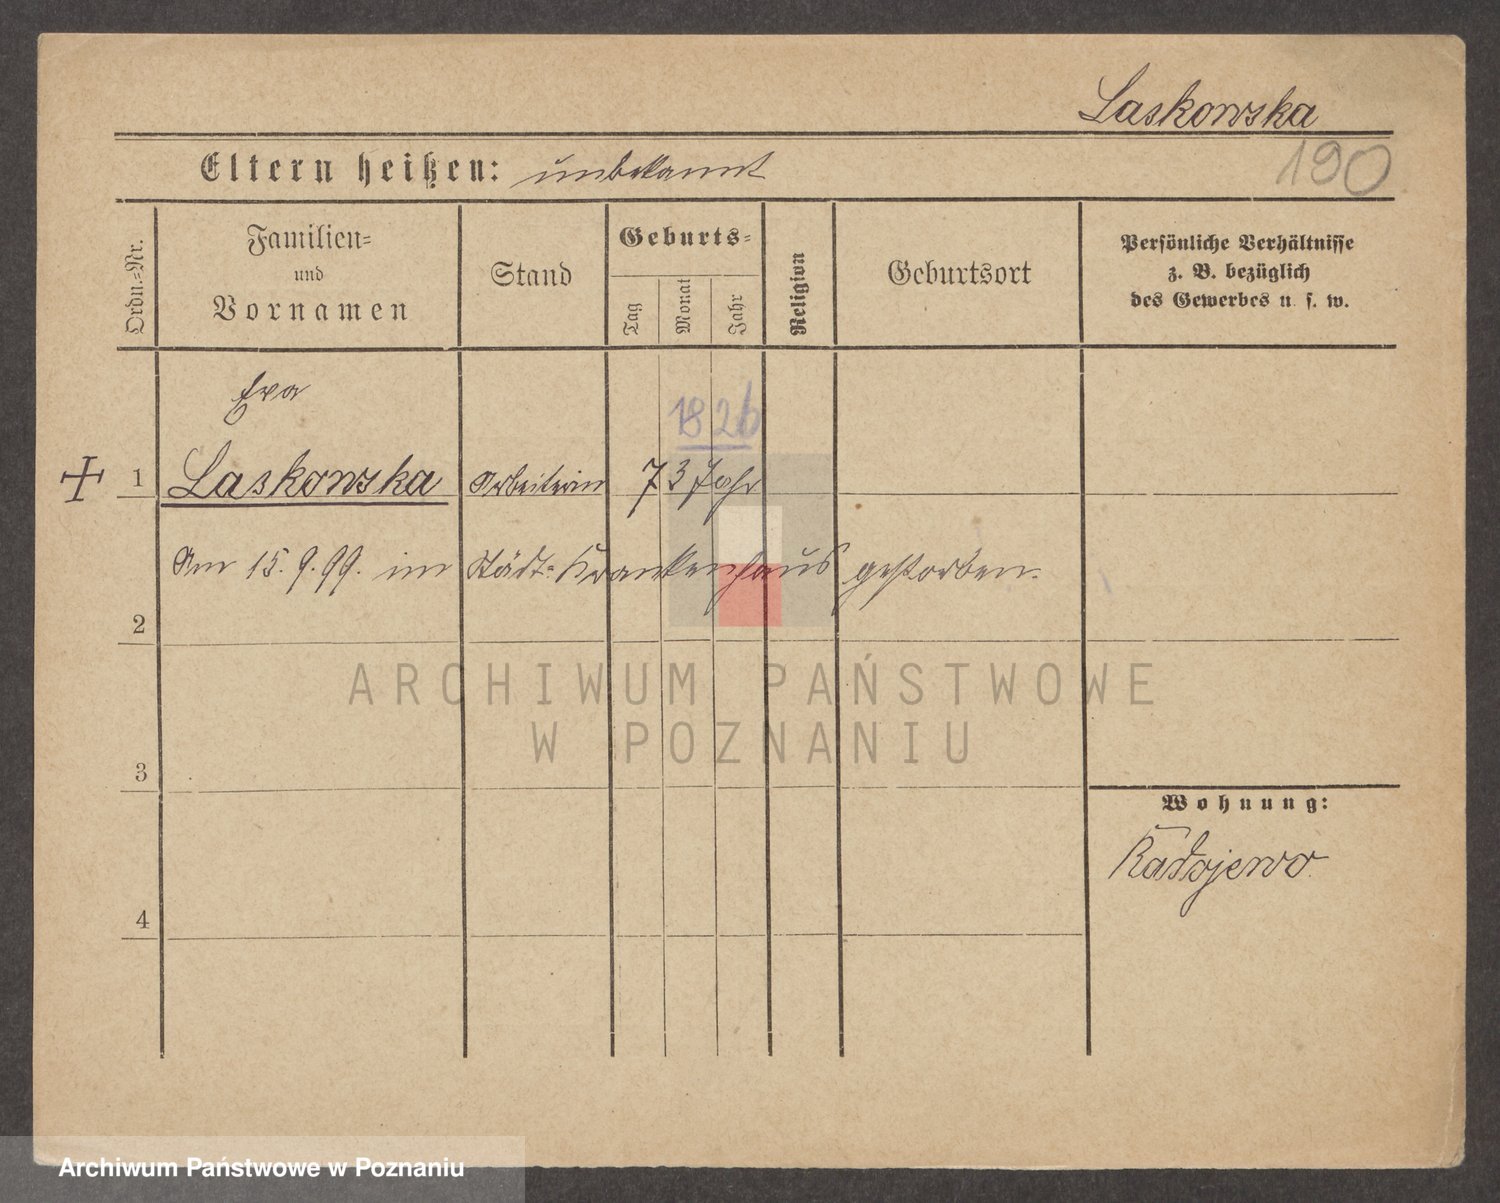 Laskowska
190
Eltern heißen: unbekannt
Ordn.-Nr.
Familien-
und
Vornamen
Stand
Geburts-
Tag
Monat
Jahr
Religion
Geburtsort
Persönliche Verhältnisse
z. B. bezüglich
des Gewerbes u. s. w.
Eva
1826
1 Laskowska Arbeiterin 73 Jahr
Am 15.9.99. im Städt. Krankenhaus gestorben.
2
ARCHIWUM PAŃSTWOWE
W POZNANIU
3
Wohnung:
Radojewo
4
Archiwum Państwowe w Poznaniu